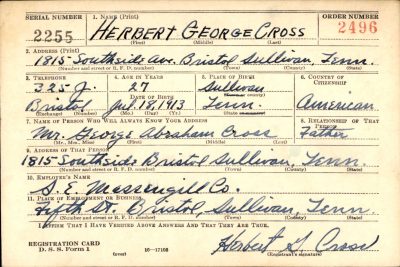 SERIAL NUMBER 1. NAME (Print) ORDER NUMBER
2255 HERBERT GEORGE CROSS 2496
(First) (Middle) (Last)
2. ADDRESS (Print)
1815 Southside Ave. Bristol Sullivan, Tenn.
(Number and street or R. F. D. number) (Town) (County) (State)
3. TELEPHONE 4. AGE IN YEARS 5. PLACE OF BIRTH 6. COUNTRY OF CITIZENSHIP
325 J. 27 Sullivan
(Town or county)
Bristol 18, 1913 Tenn. American
(Exchange) (Number) (Mo.) (Day) (Yr.) (State or country)
7. NAME OF PERSON WHO WILL ALWAYS KNOW YOUR ADDRESS 8. RELATIONSHIP OF THAT PERSON
Mr. George Abraham Cross Father
(Mr., Mrs., Miss) (First) (Middle) (Last)
9. ADDRESS OF THAT PERSON
1815 Southside Bristol Sullivan, Tenn.
(Number and street or R. F. D. number) (Town) (County) (State)
10. EMPLOYER'S NAME
S. E. Massengill Co.
11. PLACE OF EMPLOYMENT OR BUSINESS
Fifth St. Bristol, Sullivan, Tenn.
(Number and street or R. F. D. number) (Town) (County) (State)
I AFFIRM THAT I HAVE VERIFIED ABOVE ANSWERS AND THAT THEY ARE TRUE.
REGISTRATION CARD
D. S. S. Form 1 (over) 16—17105 Herbert G. Cross
(Registrant's signature)